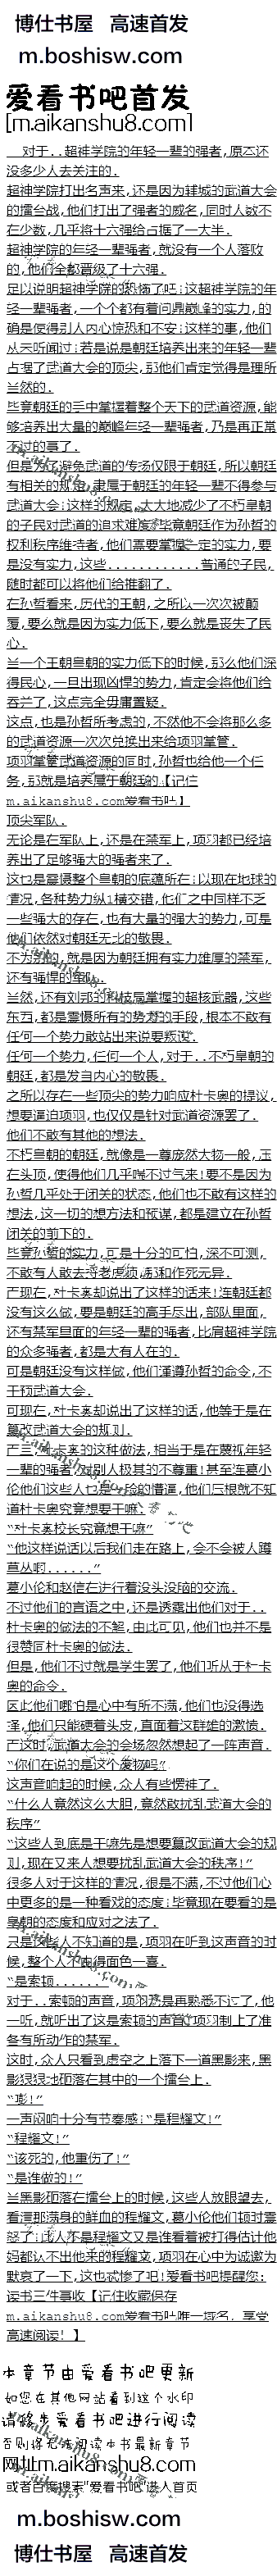 博仕书屋 高速首发
m.boshisw.com
爱看书吧首发
[m.aikanshu8.com]
对于..超神学院的年轻一辈的强者,原本还
没多少人去关注的.
超神学院打出名声来,还是因为辅城的武道大会
的擂台战,他们打出了强者的威名,同时人数不
在少数,几乎将十六强给占据了一大半.
超神学院的年轻一辈强者,就没有一个人落败
的,他们全都晋级了十六强.
足以说明超神学院的恐怖了吧!这超神学院的年
轻一辈强者,一个个都有着问鼎巅峰的实力,的
确是使得别人内心惊恐和不安!这样的事,他们
从未听闻过!若是说是朝廷培养出来的年轻一辈
占据了武道大会的顶尖,那他们肯定觉得是理所
当然的.
毕竟朝廷的手中掌握着整个天下的武道资源,能
够培养出大量的巅峰年轻一辈强者,乃是再正常
不过的事了.
但是为了避免武道的专场仅限于朝廷,所以朝廷
有相关的规定,隶属于朝廷的年轻一辈不得参与
武道大会!这样的规定,大大地减少了不朽皇朝
的子民对武道的追求难度!毕竟朝廷作为孙哲的
权利秩序维持者,他们需要掌握一定的实力,要
是没有实力,这些............普通的子民,
随时都可以将他们给推翻了.
在孙哲看来,历代的王朝,之所以一次次被颠
覆,要么就是因为实力低下,要么就是丧失了民
心.
当一个王朝皇朝的实力低下的时候,那么他们深
得民心,一旦出现凶悍的势力,肯定会将他们给
吞并了,这点完全毋庸置疑.
这点,也是孙哲所考虑的,不然他不会将那么多
的武道资源一次次兑换出来给项羽掌管.
项羽掌管武道资源的同时,孙哲也给他一个任
务,那就是培养属于朝廷的【记住
m.aikanshu8.com爱看书吧】
顶尖军队.
无论是在军队上,还是在禁军上,项羽都已经培
养出了足够强大的强者来了.
这也是震慑整个皇朝的底蕴所在!以现在地球的
情况,各种势力纵1横交错,他们之中同样不乏
一些强大的存在,也有大量的强大的势力,可是
他们依然对朝廷无比的敬畏.
不为别的,就是因为朝廷拥有实力雄厚的禁军,
还有强悍的军队.
当然,还有刘邦的科技局掌握的超核武器,这些
东西,都是震慑所有的势力的手段,根本不敢有
任何一个势力敢站出来说要叛谋.
任何一个势力,任何一个人,对于..不朽皇朝的
朝廷,都是发自内心的敬畏.
之所以存在一些顶尖的势力响应杜卡奥的提议,
想要逼迫项羽,也仅仅是针对武道资源罢了.
他们不敢有其他的想法.
不朽皇朝的朝廷,就像是一尊庞然大物一般,压
在头顶,使得他们几乎喘不过气来!要不是因为
孙哲几乎处于闭关的状态,他们也不敢有这样的
想法,这一切的想方法和预谋,都是建立在孙哲
闭关的前下的.
毕竟孙哲的实力,可是十分的可怕,深不可测,
不敢有人敢去捋老虎须,那和作死无异.
而现在,杜卡奥却说出了这样的话来!连朝廷都
没有这么做,要是朝廷的高手尽出,部队里面,
还有禁军里面的年轻一辈的强者,比肩超神学院
的众多强者,都是大有人在的.
可是朝廷没有这样做,他们谨遵孙哲的命令,不
干预武道大会.
可现在,杜卡奥却说出了这样的话,他等于是在
篡改武道大会的规则.
而且,杜卡奥的这种做法,相当于是在蔑视年轻
一辈的强者,对别人极其的不尊重!甚至连葛小
伦他们这些人也是一脸的懵逼,他们压根就不知
道杜卡奥究竟想要干嘛.
“杜卡奥校长究竟想干嘛”
“他这样说话以后我们走在路上,会不会被人蹲
草丛啊......”
葛小伦和赵信在进行着没头没脑的交流.
不过他们的言语之中,还是透露出他们对于..
杜卡奥的做法的不解,由此可见,他们也并不是
很赞同杜卡奥的做法.
但是,他们不过就是学生罢了,他们听从于杜卡
奥的命令.
因此他们哪怕是心中有所不满,他们也没得选
择,他们只能硬着头皮,直面着这群雄的激愤.
而这时,武道大会的会场忽然想起了一阵声音.
“你们在说的是这个废物吗”
这声音响起的时候,众人有些愣神了.
“什么人竟然这么大胆,竟然敢扰乱武道大会的
秩序”
“这些人到底是干嘛先是想要篡改武道大会的规
则,现在又来人想要扰乱武道大会的秩序!”
很多人对于这样的情况,很是不满,不过他们心
中更多的是一种看戏的态度!毕竟现在要看的是
皇朝的态度和应对之法了.
只是很多人不知道的是,项羽在听到这声音的时
候,整个人不由得面色一喜.
“是索顿......”
对于..索顿的声音,项羽那是再熟悉不过了,他
一听,就听出了这是索顿的声音!项羽制止了准
备有所动作的禁军.
这时,众人只看到虚空之上落下一道黑影来,黑
影狠狠地砸落在其中的一个擂台上.
“嘭!”
一声闷响十分有节奏感!“是程耀文!”
“程耀文!”
“该死的,他重伤了!”
“是谁做的!”
当黑影砸落在擂台上的时候,这些人放眼望去,
看清那满身的鲜血的程耀文,葛小伦他们顿时震
怒了!此人不是程耀文又是谁看着被打得估计他
妈都认不出他来的程耀文,项羽在心中为诚邀为
默哀了一下,这也忒惨了吧!爱看书吧提醒您:
读书三件事收【记住收藏保存
m.aikanshu8.com爱看书吧唯一域名，享受
高速阅读！】
本章节由爱看书吧更新
如您在其他网站看到这个水印
请移步爱看书吧进行阅读
否则将无法阅读本书最新章节
网址m.aikanshu8.com
或者百度搜索"爱看书吧"进入首页
m.boshisw.com
博仕书屋 高速首发